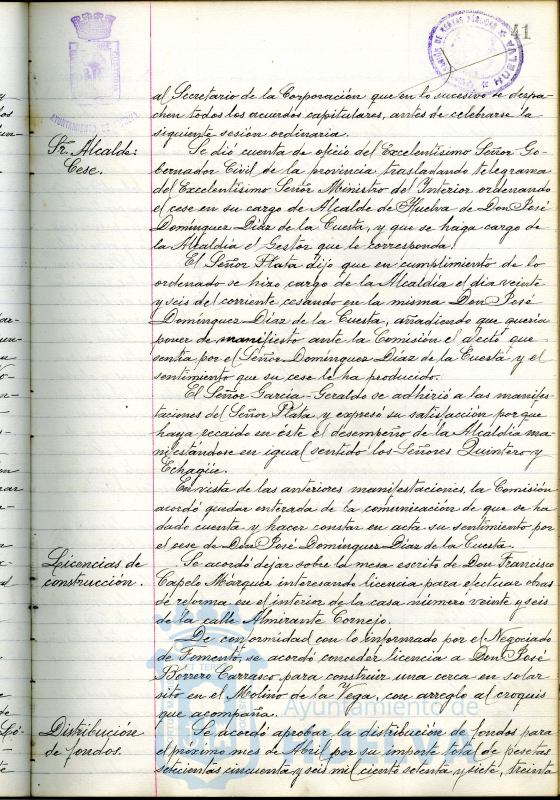 41
al Secretario de la Corporación que en lo sucesivo se despa-
chen todos los acuerdos capitulares, antes de celebrarse la
siguiente sesión ordinaria.
Sr. Alcalde:
Cese.
Se dió cuenta de oficio del Excelentísimo Señor Go-
bernador Civil de la provincia trasladando telegrama
del Excelentísimo Señor Ministro del Interior ordenando
el cese en su cargo de Alcalde de Huelva de Don José
Domínguez Díaz de la Cuesta, y que se haga cargo de
la Alcaldía el Gestor que le corresponda.
El Señor Plata dijo que en cumplimiento de lo
ordenado se hizo cargo de la Alcaldía el día veinte
y seis del corriente cesando en la misma Don José
Domínguez Díaz de la Cuesta, añadiendo que quería
poner de manifiesto ante la Comisión el afecto que
sentía por el Señor Domínguez Díaz de la Cuesta y el
sentimiento que su cese le ha producido.
El Señor García-Geraldo se adhirió a las manifes-
taciones del Señor Plata y expresó su satisfacción por que
haya recaído en éste el desempeño de la Alcaldía ma
nifestándose en igual sentido los Señores Quintero y
Echagüe.
En vista de las anteriores manifestaciones, la Comisión
acordó quedar enterada de la comunicación de que se ha
dado cuenta y hacer constar en acta su sentimiento por
el cese de Don José Domínguez Díaz de la Cuesta.
Licencias de
construcción.
Se acordó dejar sobre la mesa escrito de Don Francisco
Capelo Márquez interesando licencia para efectuar obras
de reforma en el interior de la casa número veinte y seis
de la calle Almirante Cornejo.
De conformidad con lo informado por el Negociado
de Fomento, se acordó conceder licencia a Don José
Borrero Carrasco, para construir una cerca en solar
sito en el Molino de la Vega, con arreglo al croquis
que acompaña.
Ayuntamiento de
Distribución
de fondos.
Se acordó aprobar la distribución de fondos para
el próximo mes de Abril por su importe total de pesetas
setecientas cincuenta y seis mil ciento setenta y siete, treinta